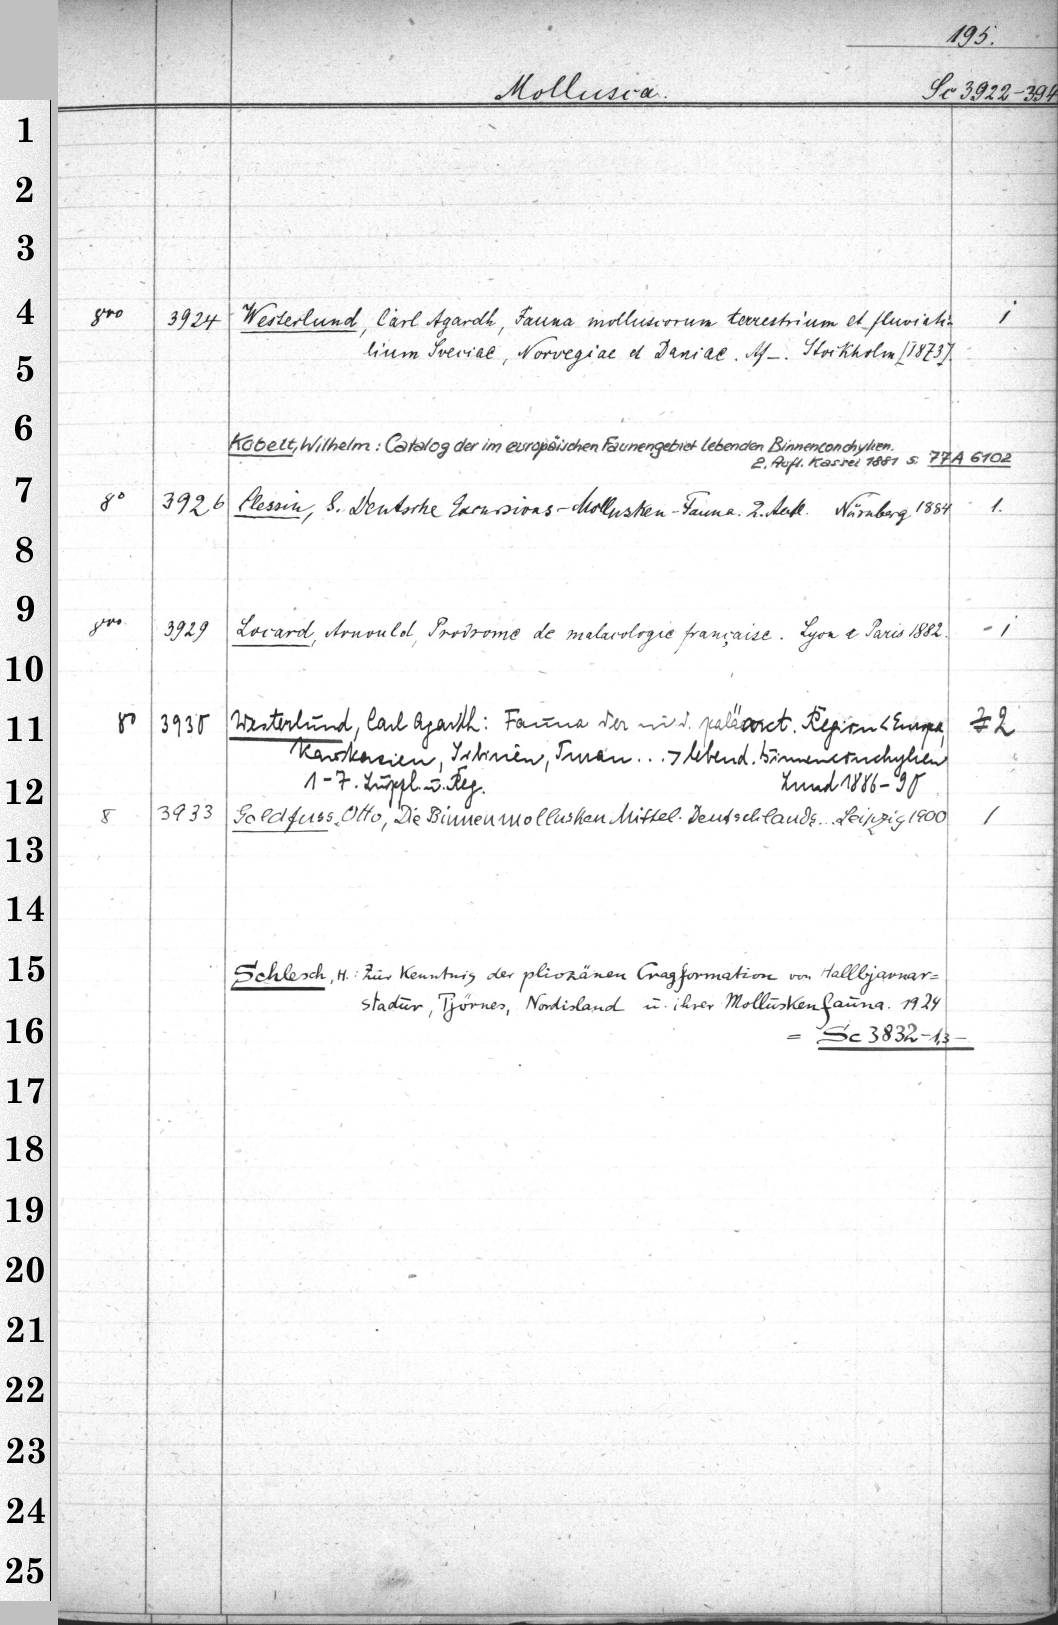 195.
Mollusca. Sc 3922-394
1
2
3
4
8vo 3924 Westerlund, Carl Agardh, Fauna molluscorum terrestrium et fluviati- 1
5
lium Sveciae, Norvegiae et Daniae. Af_. Stockholm [1873].
6
Kobelt, Wilhelm: Catalog der im europäischen Faunengebiet lebenden Binnenconchylien.
2. Aufl. Kassel 1881 s. 77A 6102
7
8° 3926 Clessin, S. Deutsche Excursions-Mollusken-Fauna. 2. Aufl. Nürnberg 1884 1.
8
9
8vo. 3929 Locard, Arnould, Prodrome de malacologie française. Lyon & Paris 1882. - 1
10
11
8° 3930 Westerlund, Carl Agardh: Fauna der in d. paläarct. Region <Europa, 2
Kaukasien, Sibirien, Turan...> lebend. Binnenconchylien
12
1-7. Suppl. u. Reg. Lund 1886-90
8 3933 Goldfuss, Otto, Die Binnenmollusken Mittel-Deutschlands... Leipzig 1900 1
13
14
15
Schlesch, H.: Zur Kenntnis der pliozänen Cragformation von Hallbjarnar=
stadur, Tjörnes, Nordisland u. ihrer Molluskenfauna. 1924
16
= Sc 3832-13-
17
18
19
20
21
22
23
24
25